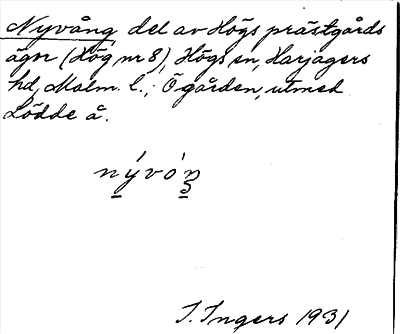 Nyvång del av Högs prästgårds
ägor (Hög nr 8), Högs sn, Harjagers
hd, Malm. l.; Ögården, utmed
Lödde å.
nývóŋ
I. Ingers 1931